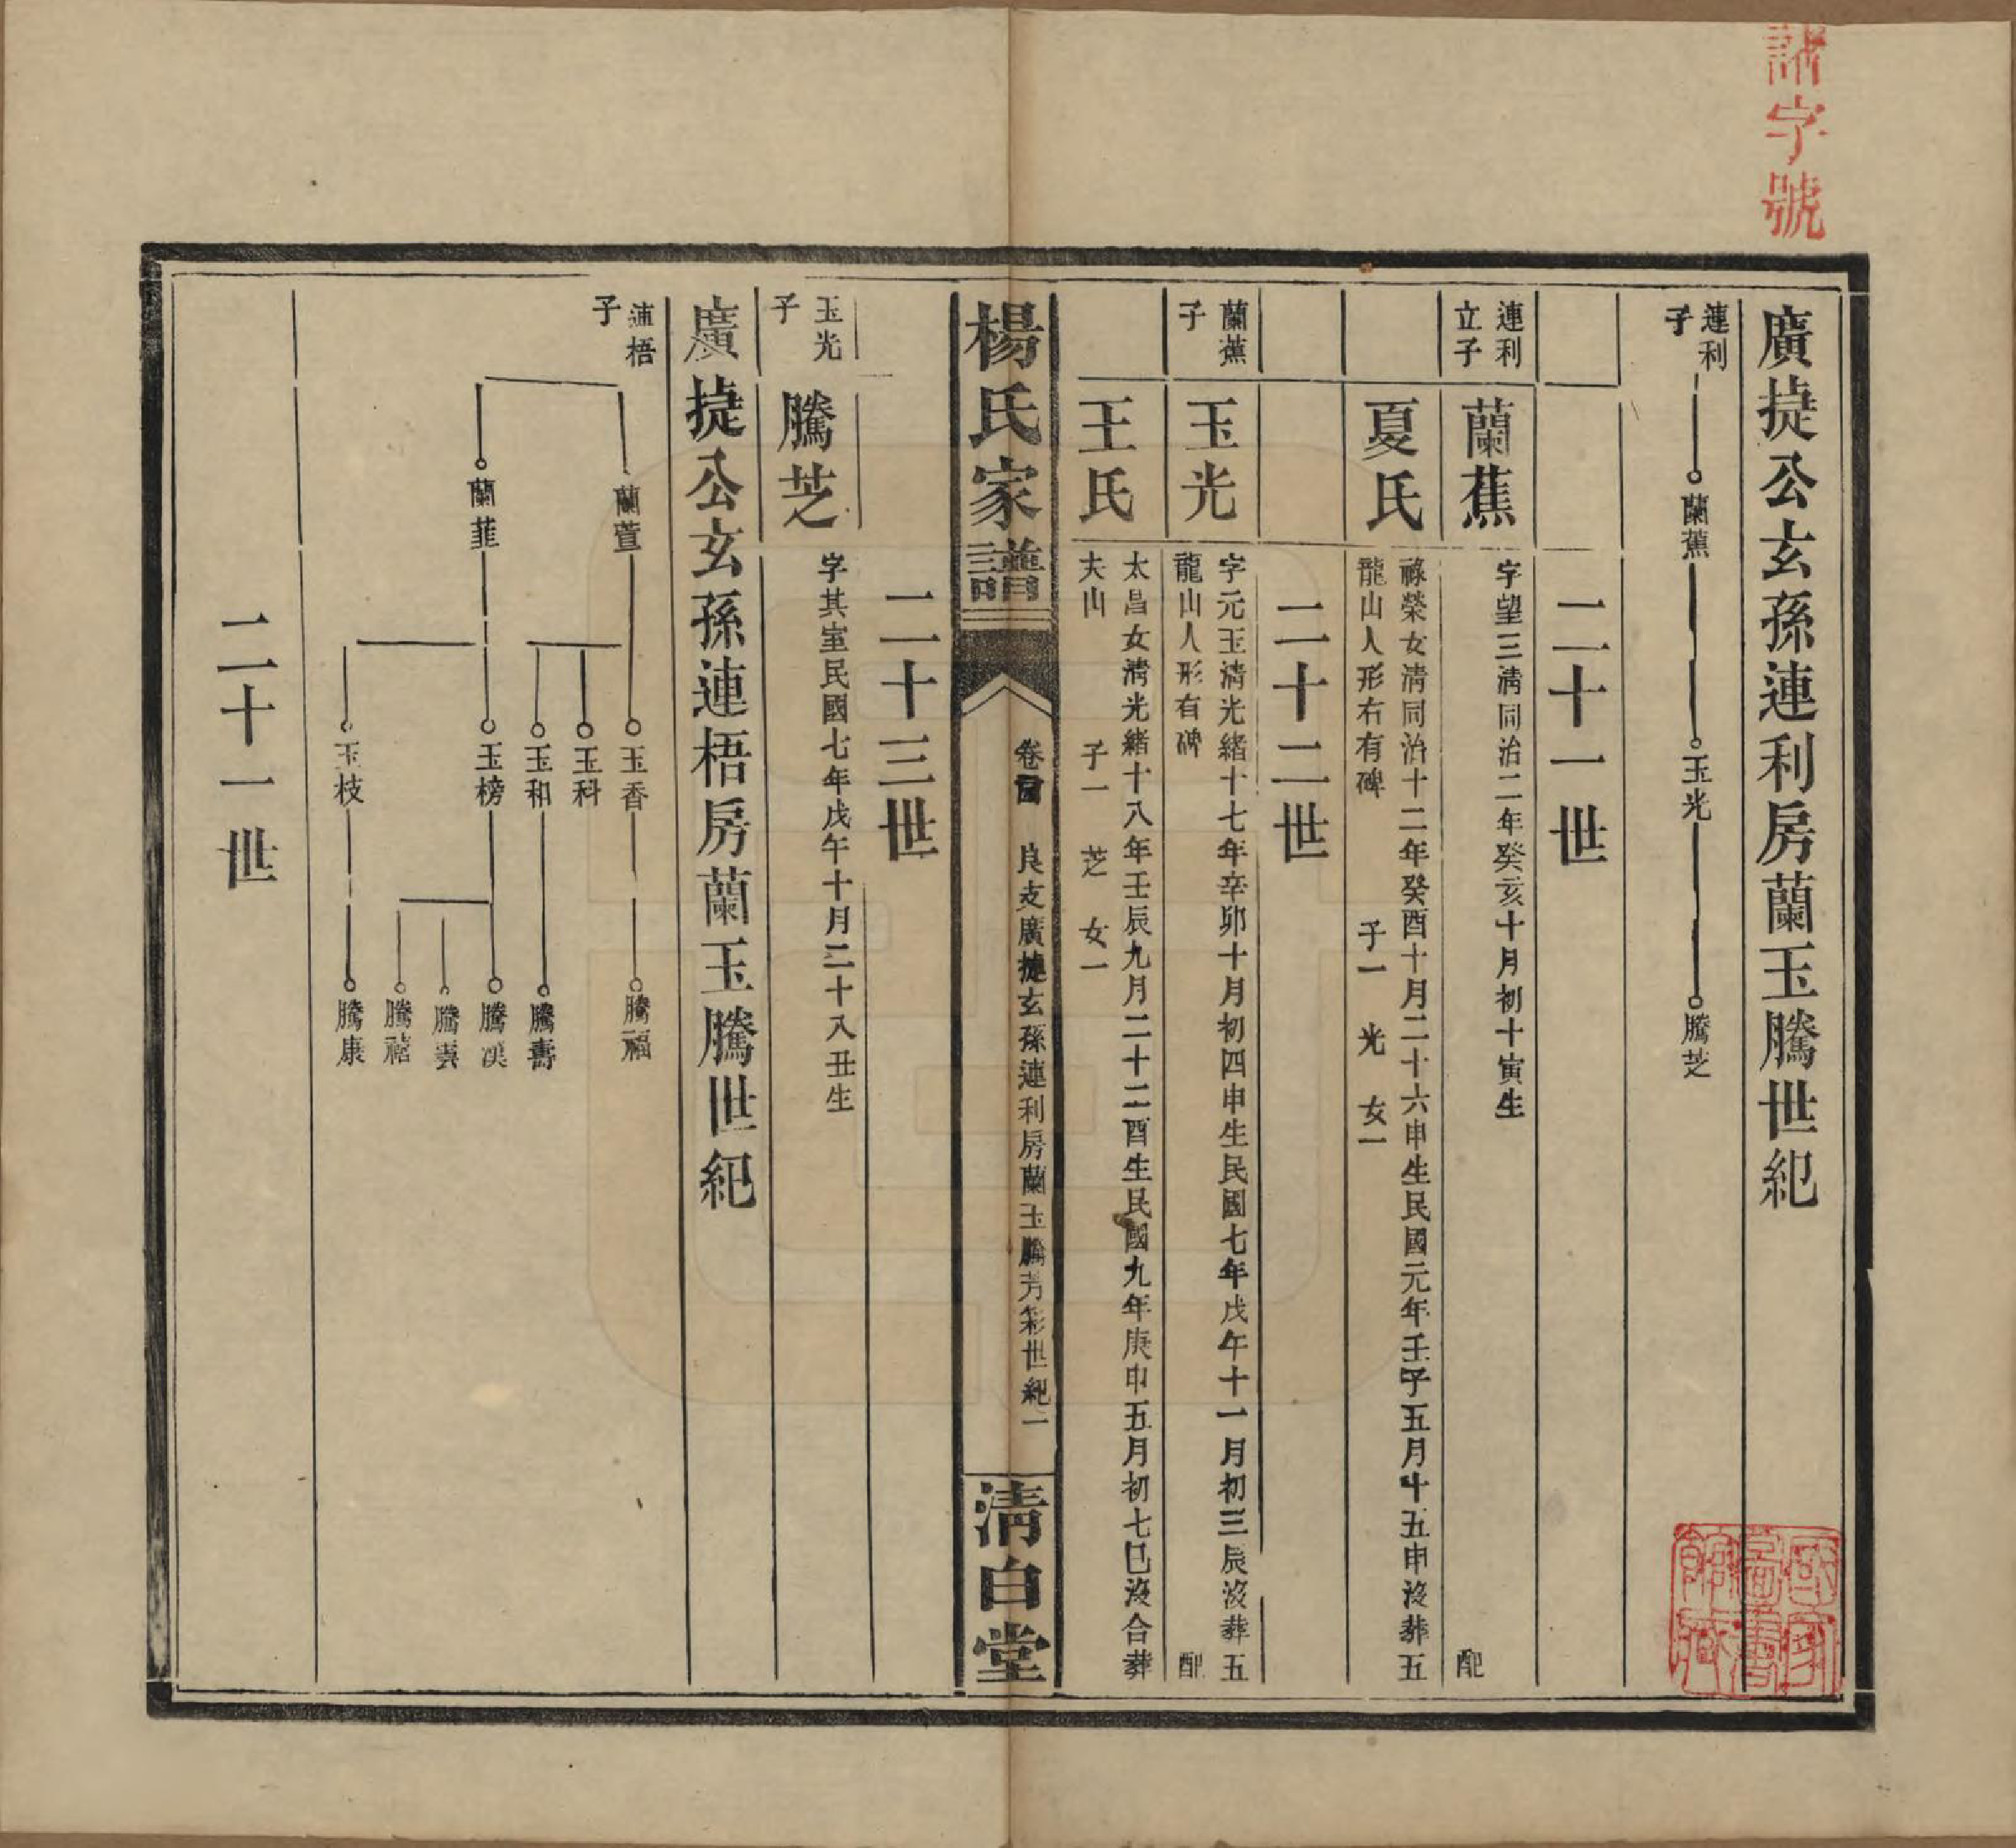 詔字號
廣㨗公玄孫連利房蘭玉騰世紀
連利子
蘭蕉
玉光
騰芝
二十一世
連利立子
蘭蕉
字望三淸同治二年癸亥十月初十寅生
配
夏氏
祿榮女淸同治十二年癸酉十月二十六申生民國元年壬子五月十五申沒葬五
龍山人形右有碑　子一　光　女一
二十二世
蘭蕉子
玉光
字元玉淸光緖十七年辛卯十月初四申生民國七年戊午十一月初三辰沒葬五
龍山人形有碑　配
王氏
太昌女淸光緖十八年壬辰九月二十二酉生民國九年庚申五月初七巳沒合葬
夫山　子一　芝　女一
楊氏家譜
卷　良支廣㨗玄孫連利房蘭玉騰芳彩世紀一
淸白堂
二十三世
玉光子
騰芝
字其室民國七年戊午十月二十八丑生
廣㨗公玄孫連梧房蘭玉騰世紀
連梧子
蘭萱
蘭韮
玉香
玉科
玉和
玉榜
玉枝
騰福
騰壽
騰漢
騰雲
騰禧
騰康
二十一世
國家圖書館藏